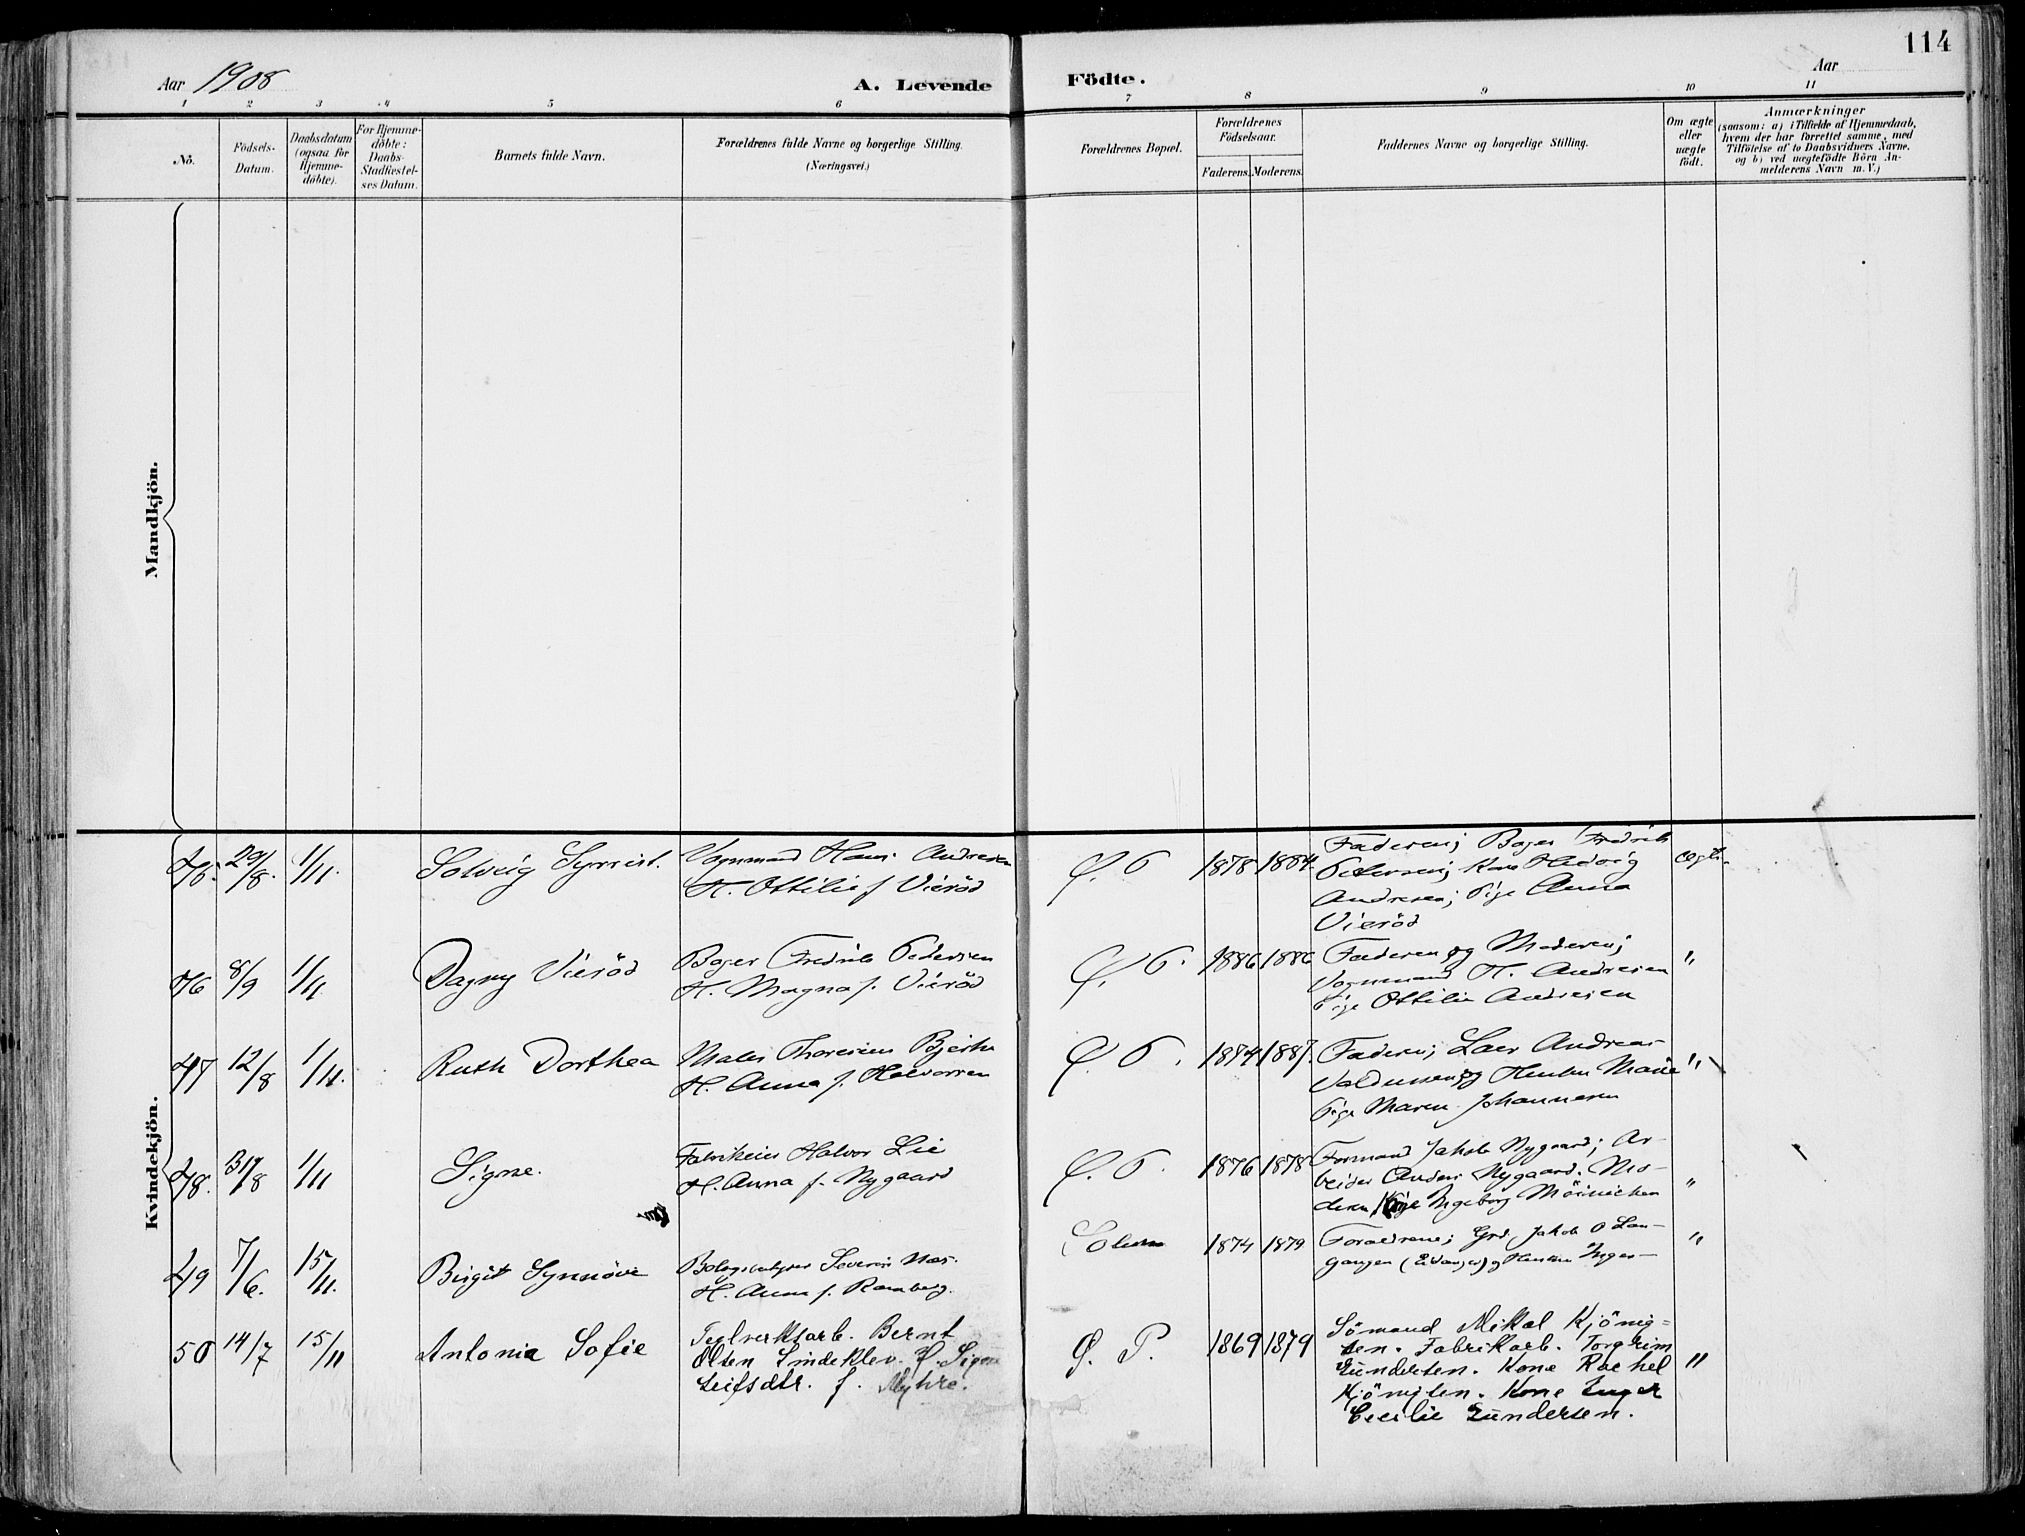 114
Aar 1908
A. Levende Födte.
Aar
1 2 3 4 5 6 7 8 9 10 11
No.
Födsels-
Datum.
Daabsdatum
(ogsaa for
Hjemme-
döbte).
For Hjemme-
döbte:
Daabs-
Stadfæstel-
ses Datum.
Barnets fulde Navn.
Forældrenes fulde Navne og borgerlige Stilling.
(Næringsvei.)
Forældrenes Bopæl.
Forældrenes
Födselsaar.
Faderens. Moderens.
Faddernes Navne og borgerlige Stilling.
Om ægte
eller
uægte
födt.
Anmærkninger
(saasom: a) i Tilfælde af Hjemmedaab,
hvem der har forrettet samme, med
Tilföielse af to Daabsvidners Navne.
og b) ved uægtefödte Börn An-
melderens Navn m. V.)
Mandkjön.
Kvindekjön.
29/8. 1/11. Solveig
Vognmand Hans Andresen
H. Ottilie f. Vieröd
1878
Faderen; Bager Fredrik
Pedersen; Kone Hedvig
Andresen; Pige Anna
Vieröd
ægte.
46 8/9 1/11 Dagny Vieröd
Bager Fredrik Pedersen
H. Magna f. Vieröd
1886 1886
Faderen og Moderen;
Vognmand H. Andresen
Pige Ottilie Andresen
"
47 12/8 1/11. Ruth Dorthea
Maler Thoresen
H. Anna f. Halvorsen
Faderen; Andreas
Marie
Pige Maren Johannesen
"
48. 31/8 1/11 Signe.
Halvor Lie
H. Anna f. Nygaard
1876 1878
Formand Jakob Nygaard; Ar-
beider Anders Nygaard. Mo-
deren, Pige Ingeborg
"
49 7/6. 15/11. Birgit Synnöve
Severin
H. Anna f. Ramberg.
Solum
1874 1879
Forældrene; Grd. Jakob O Lan-
gangen (Eidanger) og
"
50 14/7 15/11 Antonia Sofie
Teglverksarb. Bernt
Olsen Lindeklev. H. Signe
Leifsdtr. f. Myhre.
Ø. P.
1869 1879
Sömand Mikal Kjönig=
sen. Fabrikarb. Torgrim
Gundersen. Kone Rachel
Kjönigsen. Kone Inger
Cecilie Gundersen.
"